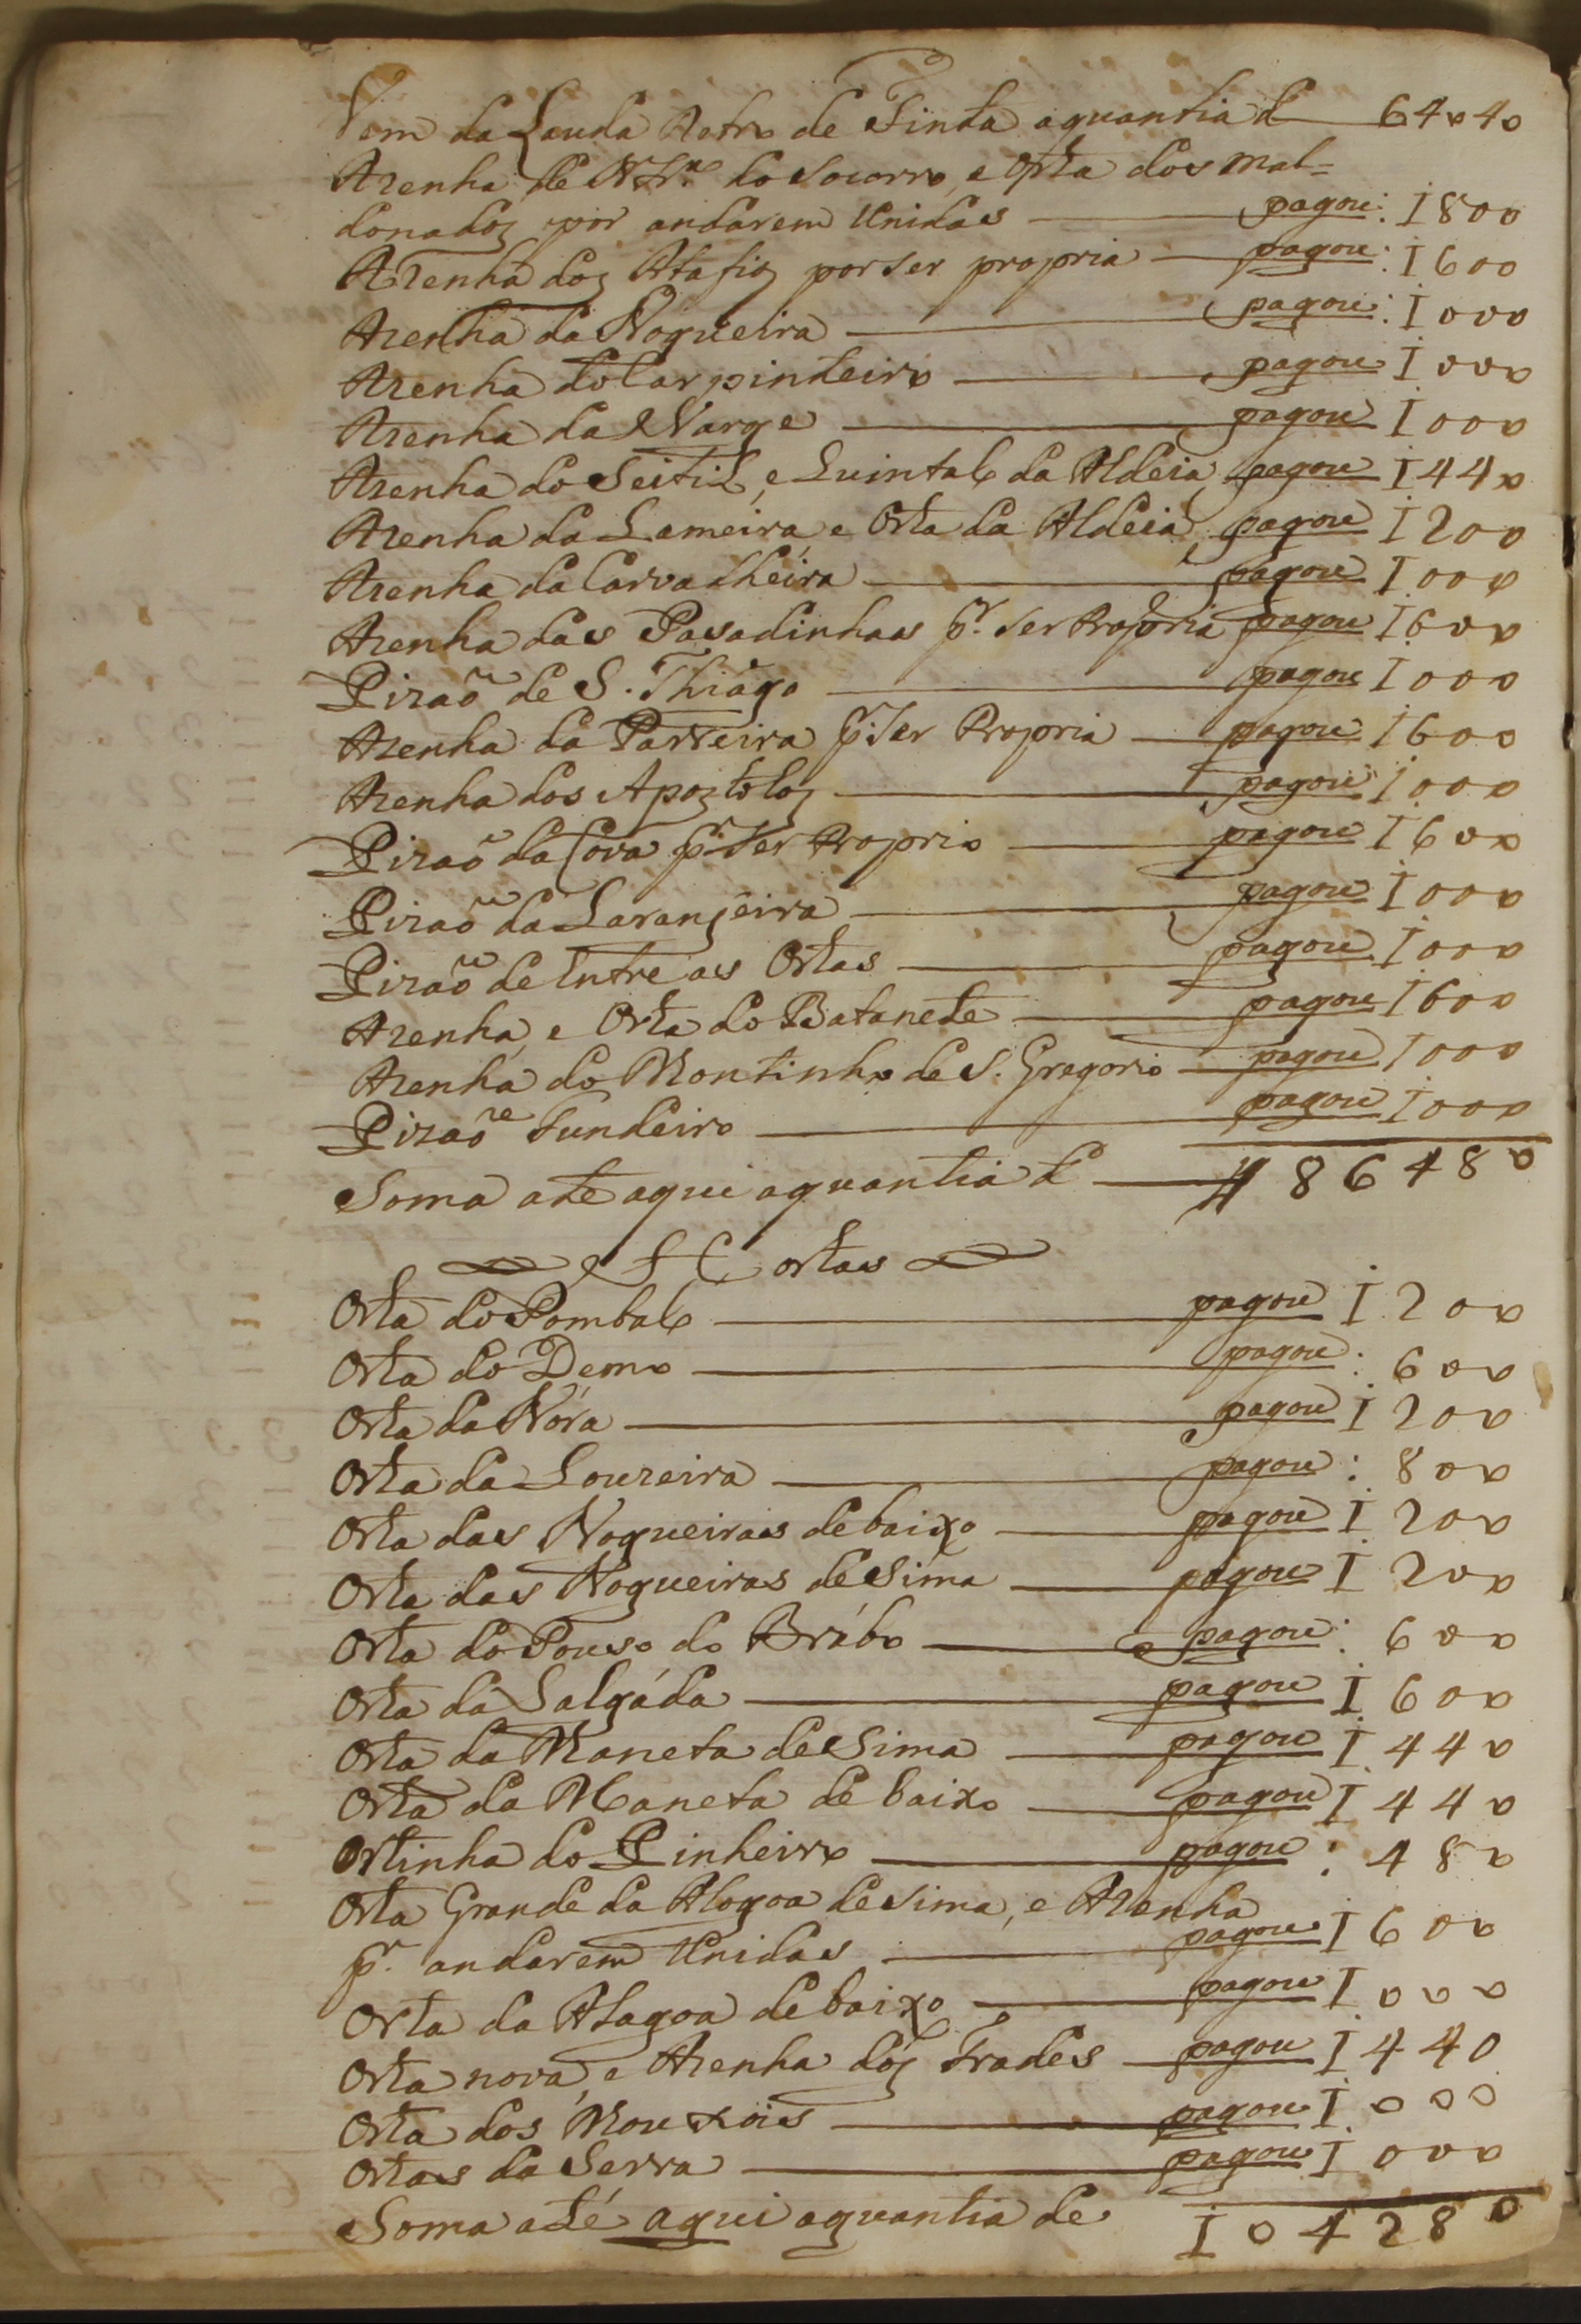 Vem da Lauda Retro de Finta aquantia d 64040
Azenha de N. Srª. do Socorro, e Orta dos Mal=
donados por andarem Unidas pagou: 1800
Azenha dos Atafis por ser propria pagou: 1600
Azenha da Nogueira pagou: 1000
Azenha do Carpinteiro pagou 1000
Azenha da Varge pagou 1000
Azenha do Seitil, e Quintal da Aldeia pagou 1440
Azenha da Lameira e Orta da Aldeia pagou 1200
Azenha da Carvalheira pagou 1000
Azenha das Pasadinhas pr. ser Propria pagou 1600
Pizaõ de S. Thiago pagou 1000
Azenha da Parreira pr. ser Propria pagou 1600
Azenha dos Apostolos pagou 1000
Pizaõ da Cova pr. ser Proprio pagou 1600
Pizaõ da Laranjeira pagou 1000
Pizaõ de Entre as Ortas pagou 1000
Azenha, e Orta do Batanete pagou 1600
Azenha do Montinho de S. Gregorio pagou 1000
Pizaõ Fundeiro pagou 1000
Soma ate aqui aquantia d 86480
Ortas
Orta do Pombal pagou 1200
Orta do Demo pagou: 600
Orta da Nóra pagou 1200
Orta da Loureira pagou: 800
Orta das Nogueiras debaixo pagou 1200
Orta das Nogueiras de Sima pagou 1200
Orta do Pouso do Brábo pagou: 600
Orta da Salgáda pagou 1600
Orta da Maneta de Sima pagou 1440
Orta da Maneta de baixo pagou 1440
Ortinha do Pinheiro pagou: 480
Orta Grande da Alogoa de sima, e Azenha
pr. andarem Unidas pagou 1600
Orta da Alagoa debaixo pagou 1000
Orta nova, e Azenha dos Frades pagou 1440
Orta dos Mouxóis pagou 1000
Ortas da Serra pagou 1000
Soma até aqui aquantia de 104280